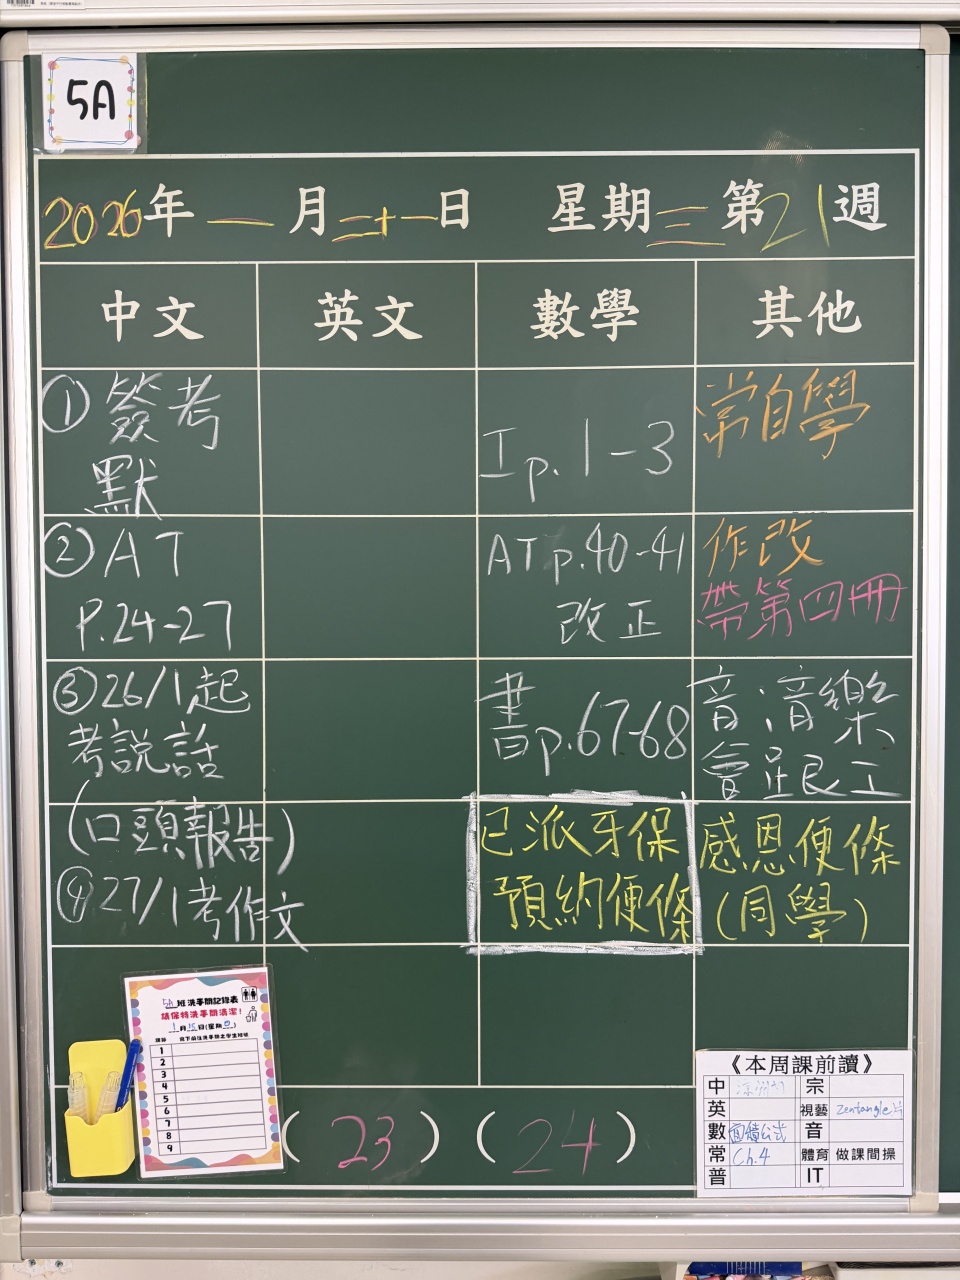 5A
2026年一月二十一日 星期三第21週
中文 英文 數學 其他
①簽考
默
②AT
P.24-27
③26/1起
考說話
(口頭報告)
④27/1考作文
工p.1-3
ATp.40-41
改正
書p.67-68
已派牙保
預約便條
常自學
作改
帶第四冊
音:音樂
會
感恩便條
(同學)
(23) (24)
5A班洗手間記錄表
請保持洗手間清潔!
1月15日(星期
1
2
3
4
5
6
7
8
9
《本周課前讀》
中 宗
英 視藝 Zentangle
數 面積公式 音
常 Ch.4 體育 做課間操
普 IT